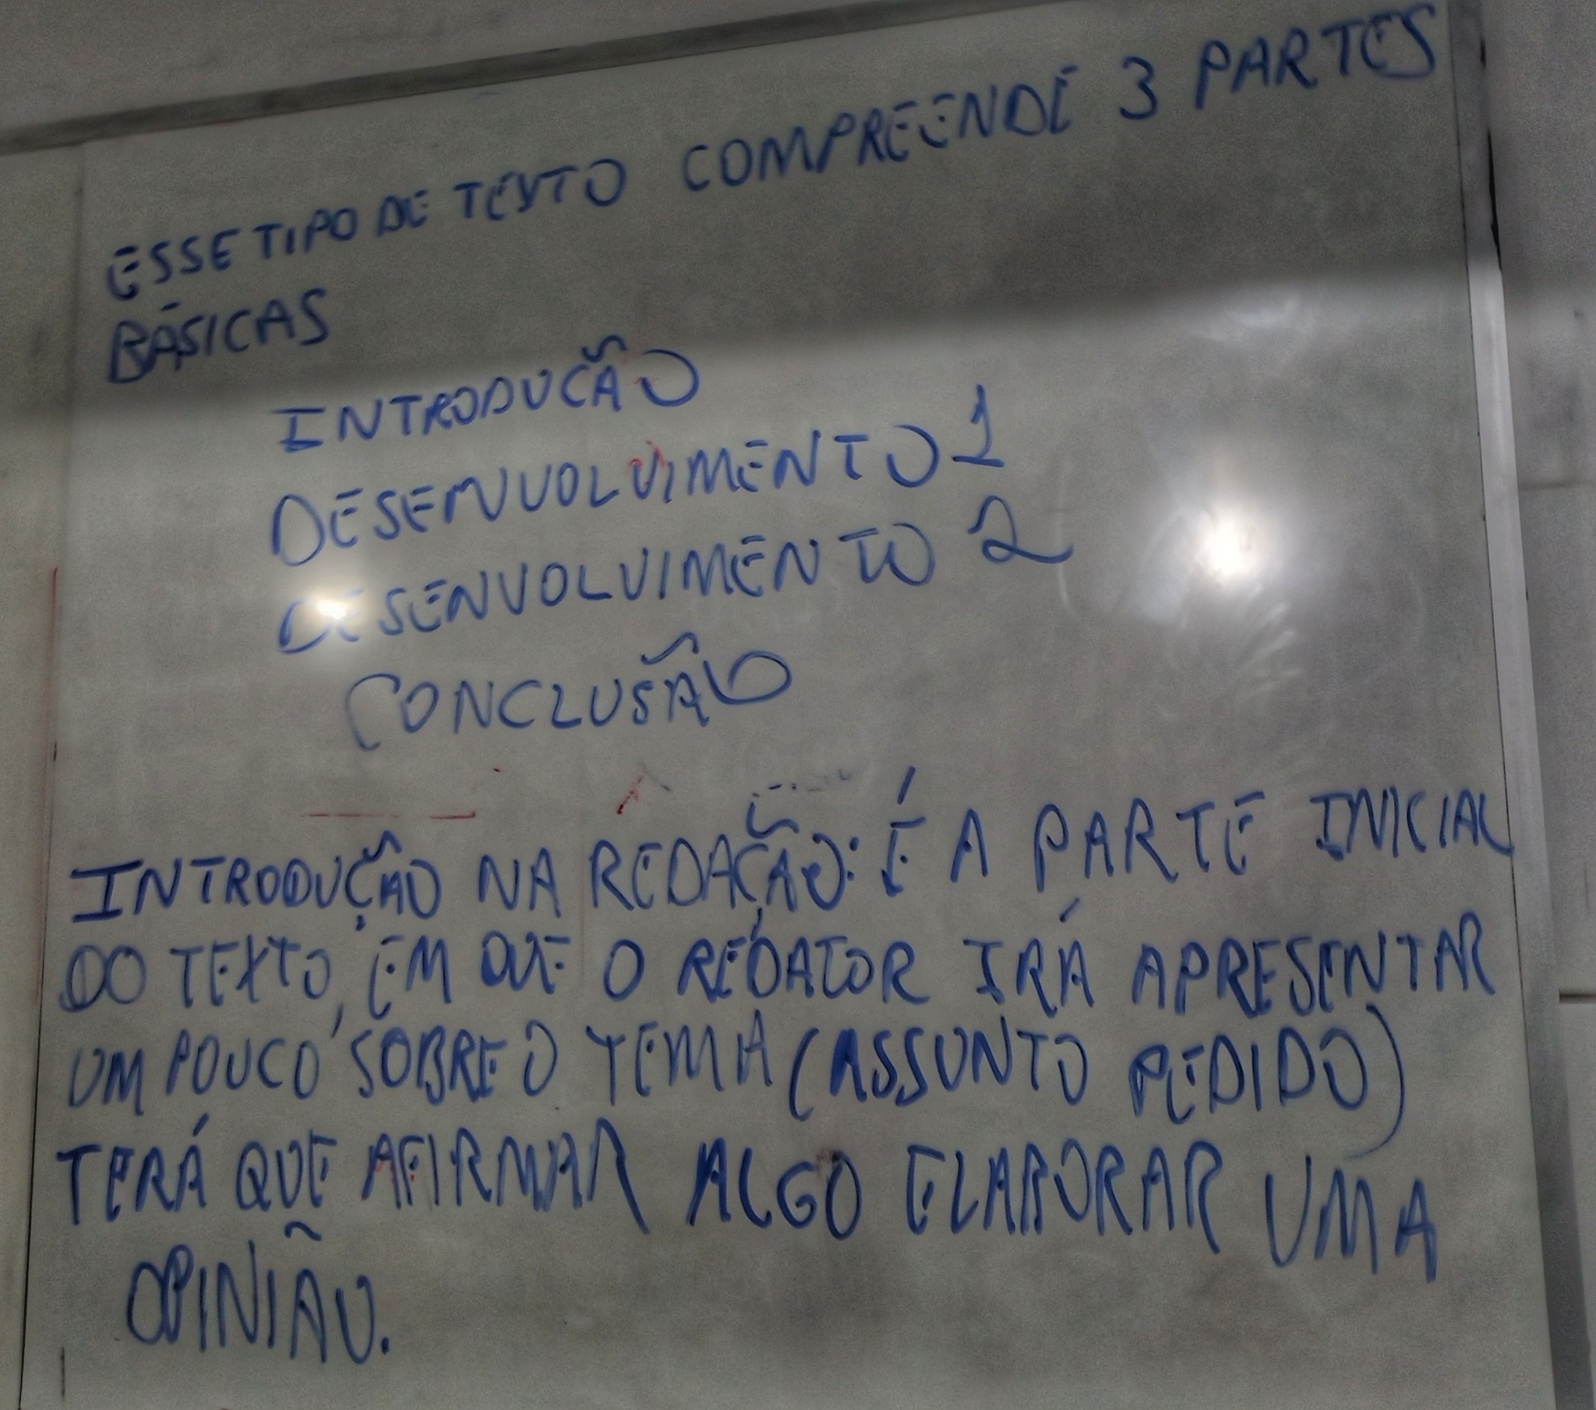 ESSE TIPO DE TEXTO COMPREENDE 3 PARTES
BÁSICAS
INTRODUÇÃO
DESENVOLVIMENTO 1
DESENVOLVIMENTO 2
CONCLUSÃO
INTRODUÇÃO NA REDAÇÃO: É A PARTE INICIAL
DO TEXTO, EM QUE O REDATOR IRÁ APRESENTAR
UM POUCO SOBRE O TEMA (ASSUNTO PEDIDO)
TERÁ QUE AFIRMAR ALGO ELABORAR UMA
OPINIÃO.